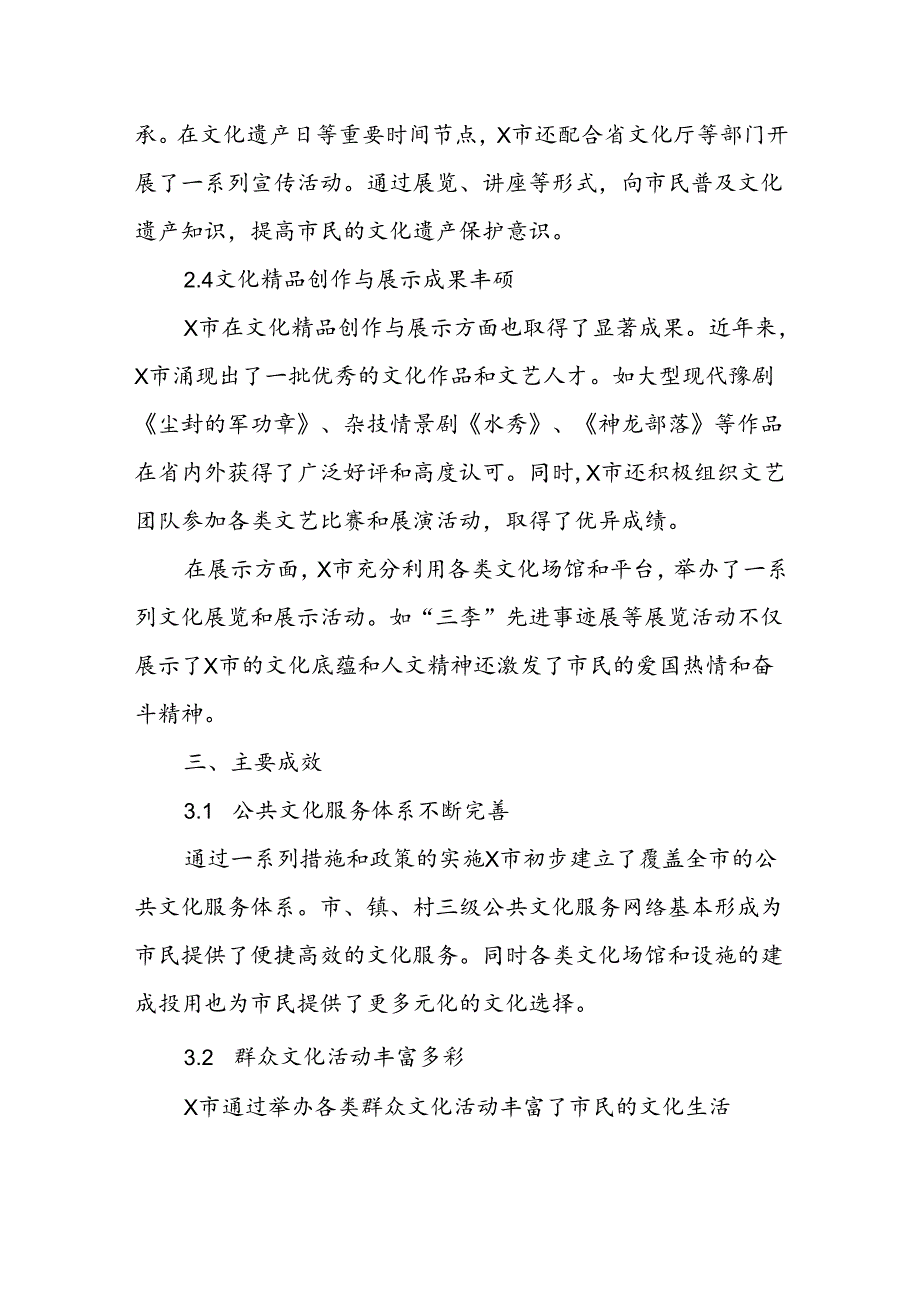 承。在文化遗产日等重要时间节点，X市还配合省文化厅等部门开
展了一系列宣传活动。通过展览、讲座等形式，向市民普及文化
遗产知识，提高市民的文化遗产保护意识。
2.4文化精品创作与展示成果丰硕
X市在文化精品创作与展示方面也取得了显著成果。近年来，
X市涌现出了一批优秀的文化作品和文艺人才。如大型现代豫剧
《尘封的军功章》、杂技情景剧《水秀》、《神龙部落》等作品
在省内外获得了广泛好评和高度认可。同时，X市还积极组织文艺
团队参加各类文艺比赛和展演活动，取得了优异成绩。
在展示方面，X市充分利用各类文化场馆和平台，举办了一系
列文化展览和展示活动。如“三李”先进事迹展等展览活动不仅
展示了X市的文化底蕴和人文精神还激发了市民的爱国热情和奋
斗精神。
三、主要成效
3.1 公共文化服务体系不断完善
通过一系列措施和政策的实施X市初步建立了覆盖全市的公
共文化服务体系。市、镇、村三级公共文化服务网络基本形成为
市民提供了便捷高效的文化服务。同时各类文化场馆和设施的建
成投用也为市民提供了更多元化的文化选择。
3.2 群众文化活动丰富多彩
X市通过举办各类群众文化活动丰富了市民的文化生活